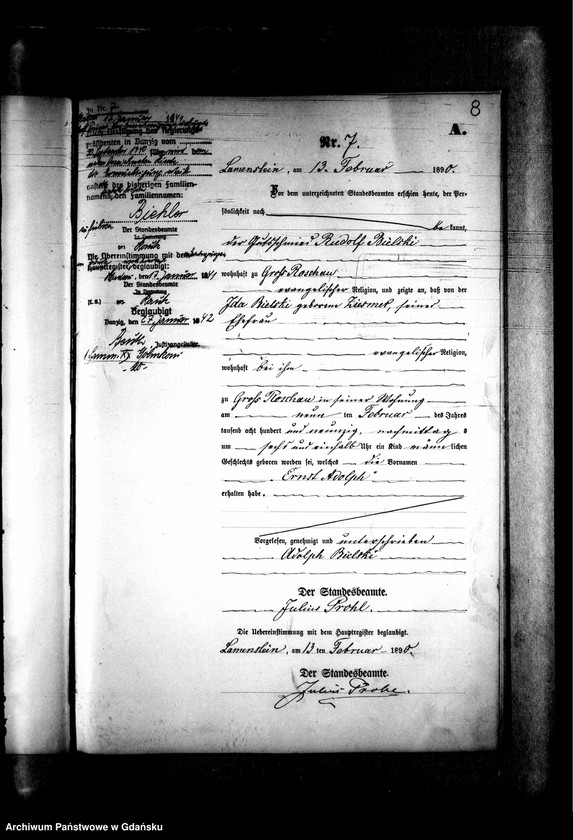 8
A.
Nr. 7.
Lamenstein, am 13. Februar 1890.
Vor dem unterzeichneten Standesbeamten erschien heute, der Per-
sönlichkeit nach
be kannt,
der Gutsschmied Rudolf Bielski
wohnhaft zu Groß Roschau
evangelischer Religion, und zeigte an, daß von der
Ida Bielski geborene Ziesmek, seiner
Ehefrau
evangelischer Religion,
wohnhaft bei ihm
zu Groß Roschau in seiner Wohnung
am neun ten Februar des Jahres
tausend acht hundert und neunzig, nachmittag s
um sechs und einhalb Uhr ein Kind männlichen
Geschlechts geboren worden sei, welches die Vornamen
Ernst Adolph
erhalten habe.
Vorgelesen, genehmigt und unterschrieben
Adolph Bielski
Der Standesbeamte.
Julius Prohl.
Die Uebereinstimmung mit dem Hauptregister beglaubigt.
Lamenstein, am 13 ten Februar 1890.
Der Standesbeamte.
Julius Prohl.
Zu Nr. 7
präsidenten in Danzig vom
den Familiennamen:
Biehler
zu führen
Der Standesbeamte
Die Übereinstimmung mit dem
Hauptregister beglaubigt:
Januar 1941
Der Standesbeamte
Beglaubigt
Danzig, den Januar 1942
Justizangestellter
Archiwum Państwowe w Gdańsku